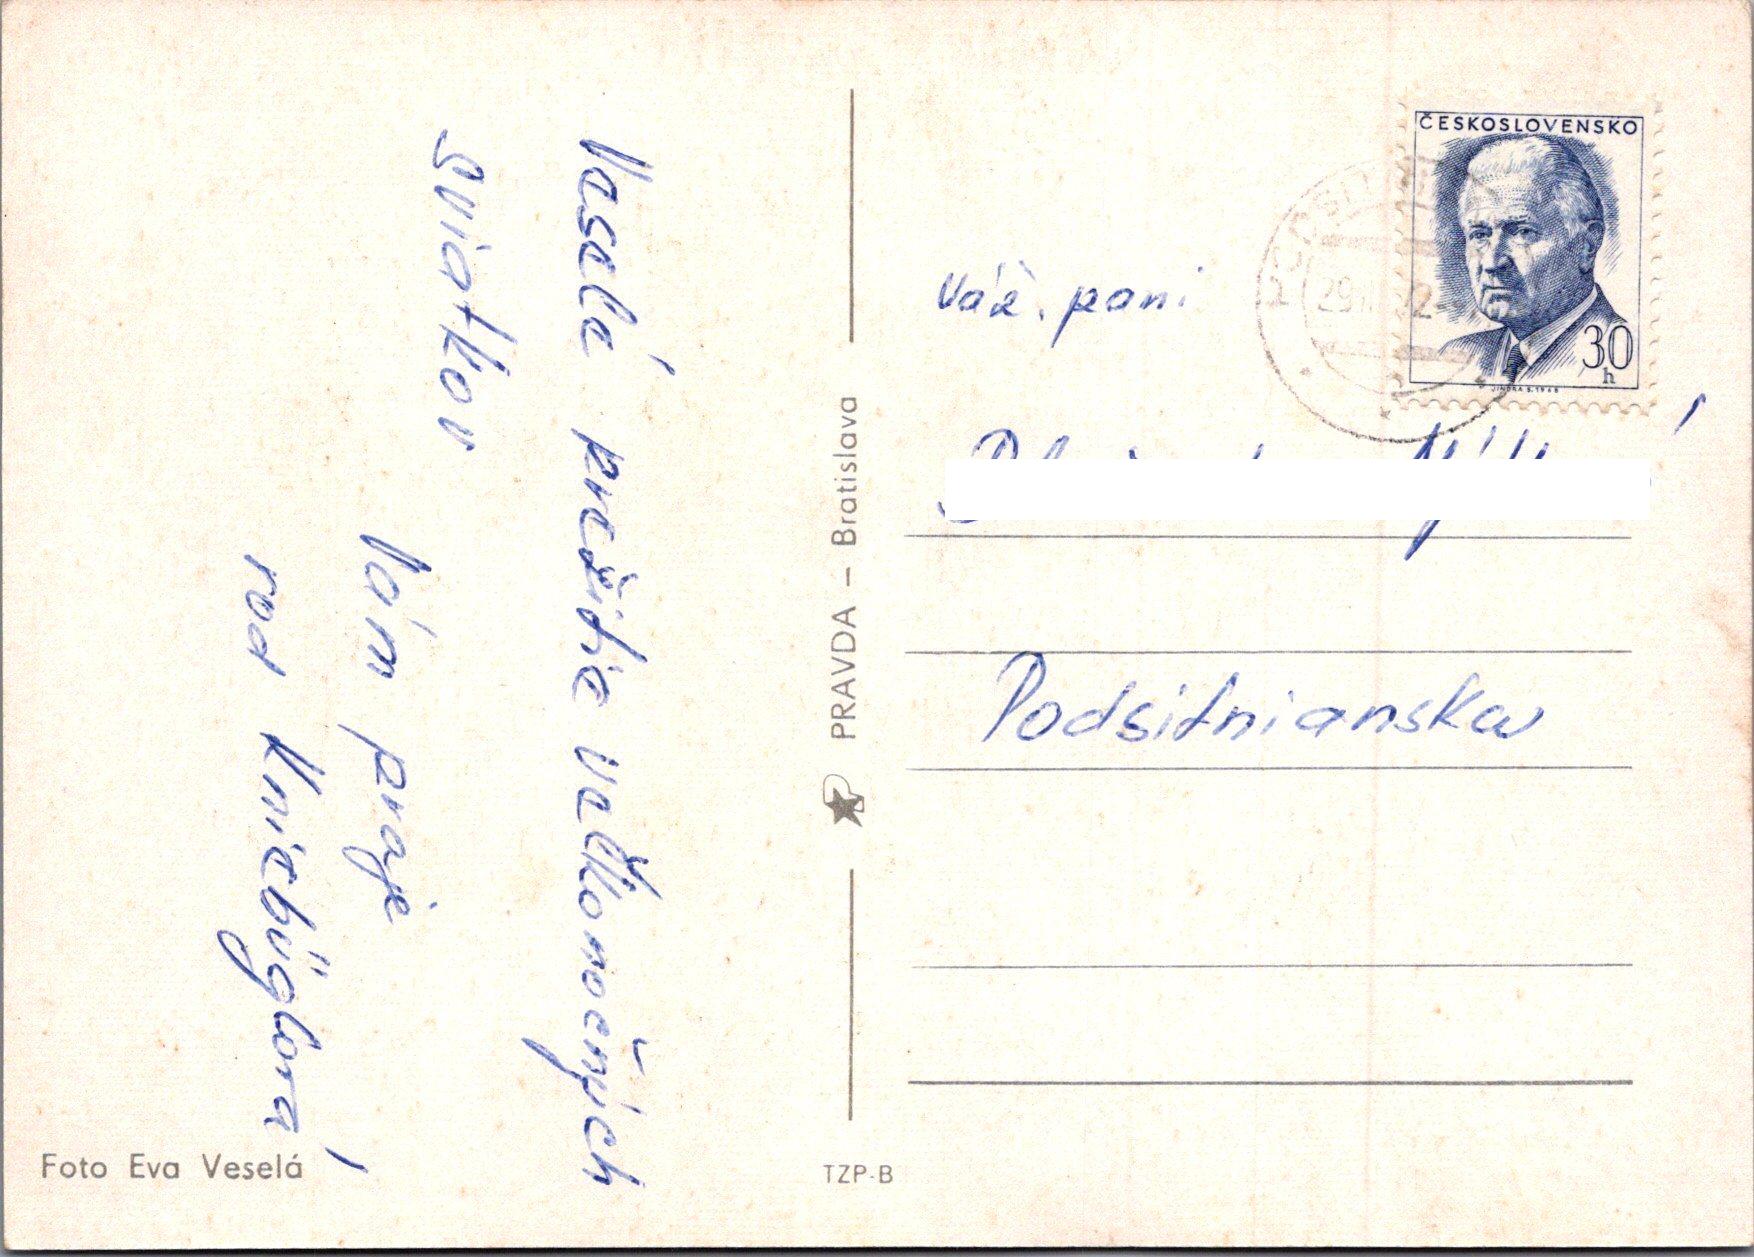 Veselé prežitie veľkonočných
sviatkov
Vám praje
rod. Kniebüglová
Foto Eva Veselá
PRAVDA – Bratislava
TZP-B
ČESKOSLOVENSKO
30
h
JINDRA S. 1968
29
Váž. pani
Podsitnianska